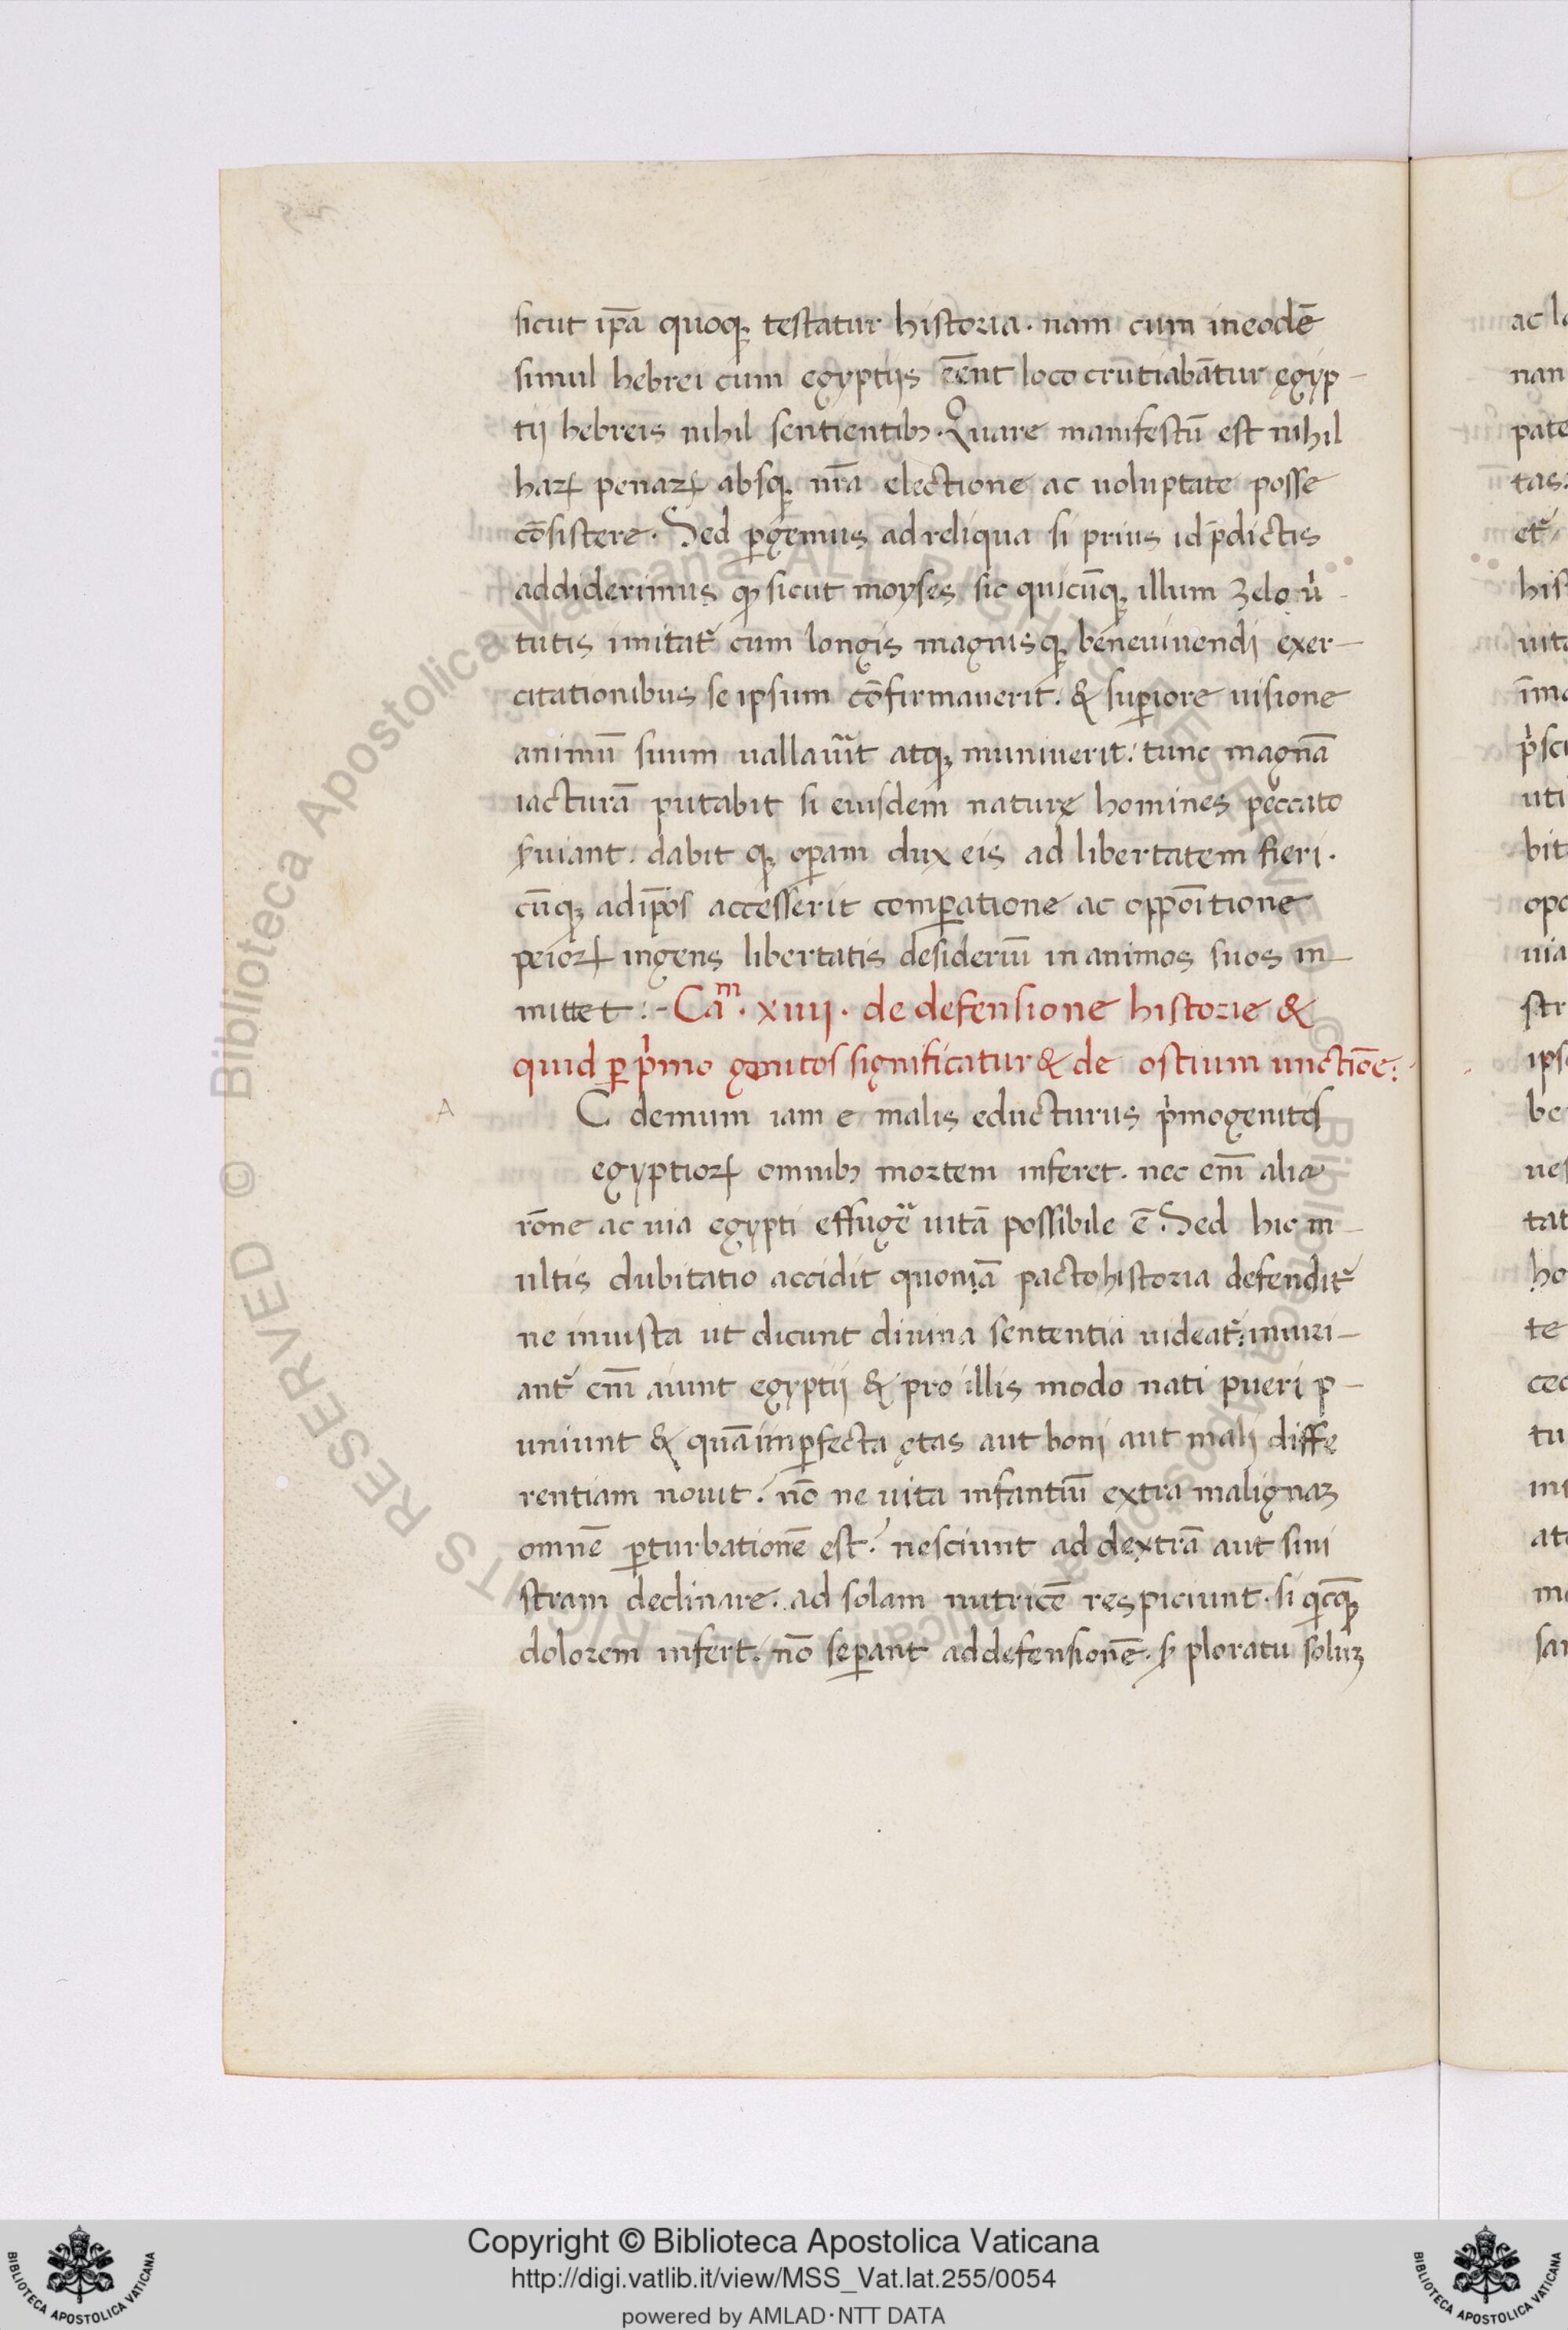 sicut ip̄a quoqꝫ testatur historia · nam cum in eodē
simul hebrei cum egyptijs eēnt loco crutiabātur ęgyp-
tij hebreis nihil sentientibꝫ · Quare manifestū est nihil
haꝝ penaꝝ absqꝫ nr̄a electione ac uoluptate posse
cōsistere · Sed ꝑgemus ad reliqua si prius id p̄dictis
addiderimus ꝙ sicut moyses sic quicūqꝫ illum zelo uͥ-
tutis imitat᷑ cum longis magnisqꝫ bene uiuendi exer-
citationibus se ipsum cōfirmauerit · & suꝑiore uisione
animū suum uallauͣit atqꝫ muniuerit : tunc magnā
iacturā putabit si eiusdem naturę homines peccato
ẜuiant · dabit qꝫ oꝑam dux eis ad libertatem fieri ·
cūqꝫ ad ip̄os accesserit comꝑatione ac oppoītione
peioꝝ ingens libertatis desideriū in animos suos in-
mittet :- Caᵐ · xiiij · de defensione historie &
quid ꝑ pͥmo genitos significatur & de ostium unctiōe :
A
C demum iam e malis educturus pͥmogenitos
egyptioꝝ omnibꝫ mortem inferet · nec enī alia
rōne ac uia egypti effugeͣ uitā possibile ē · Sed hic m-
ultis dubitatio accidit quoniā pacto historia defendit᷑
ne iniusta ut dicunt diuina sententia uideat᷑ : iniuri-
ant᷑ enī aiunt egyptij & pro illis modo nati pueri p-
uniunt & quā imꝑfecta ętas aut boni aut mali diffe
rentiam nouit · nō ne uita infantiū extra malignaꝫ
omnē ꝑturbationē est · nesciunt ad dextrā aut sini
stram declinare · ad solam nutricē respiciunt · si qͥcqꝫ
dolorem infert · nō seꝑant ad defensionē · ẜ ploratu soluꝫ
Copyright © Biblioteca Apostolica Vaticana
http://digi.vatlib.it/view/MSS_Vat.lat.255/0054
powered by AMLAD·NTT DATA